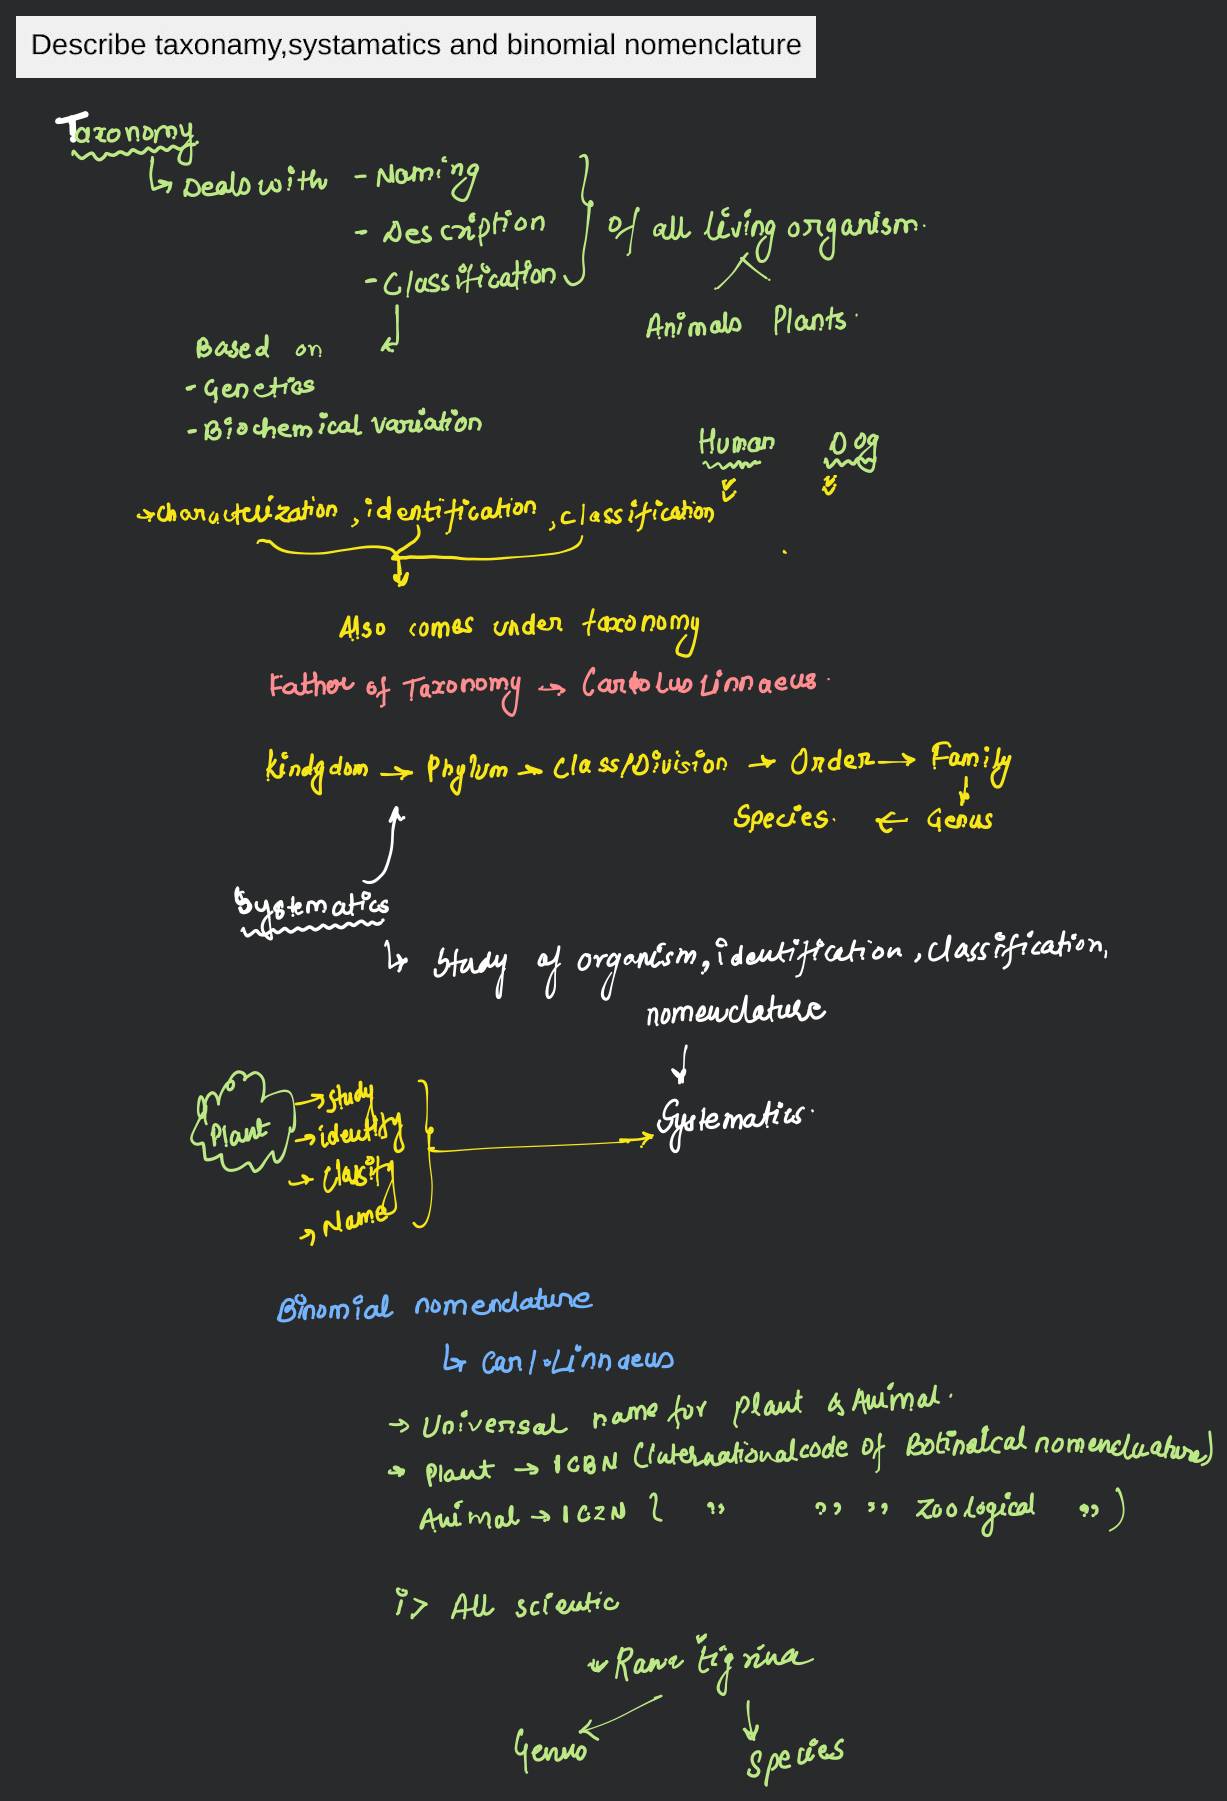 Describe taxonamy,systamatics and binomial nomenclature
Taxonomy
↳ Deals with - Naming
- Description
- Classification
of all living organism.
Animals Plants.
Based on
- Genetics
- Biochemical variation
Human Dog
→ characterization, identification, classification
Also comes under taxonomy
Father of Taxonomy → Carolus Linnaeus.
kindgdom → Phylum → Class/Division → Order → Family
Species. ← Genus
Systematics
↳ Study of organism, identification, classification,
nomenclature
Systematics.
Plant
→ study
→ identify
→ Classify
→ Name
Binomial nomenclature
↳ Carl.Linnaeus
→ Universal name for plant & Animal.
→ Plant → ICBN (International code of Botinalcal nomencluature)
Animal → ICZN ( ,, ,, ,, Zoological ,, )
i> All scientic
Rana tigrina
Genus
Species